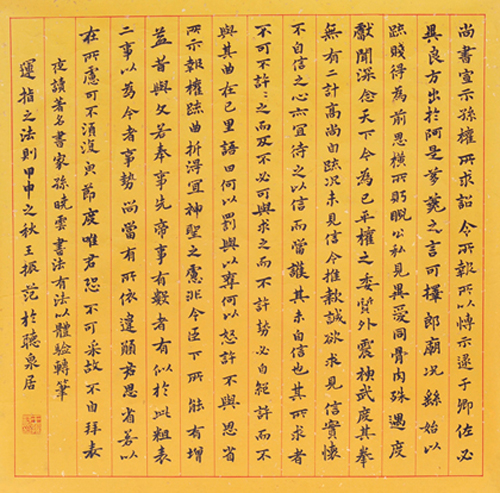 尚書宣示孫權所求詔令所報所以博示逮于卿佐必
冀良方出於阿是芻蕘之言可擇郎廟況繇始以
疏賤得為前恩橫所眄睨公私見異愛同骨肉殊遇度
獻聞深念天下今為已平權之委質外震神武度其拳
無有二計高尚自疏況未見信今推款誠欲求見信實懷
不自信之心亦宜待之以信而當護其未自信也其所求者
不可不許〻之而反不必可與求之而不許勢必自絕許而不
與其曲在己里語曰何以罰與以奪何以怒許不與思省
所示報權疏曲折得宜神聖之慮非今臣下所能有增
益昔與文若奉事先帝事有數者有似於此粗表
二事以為今者事勢尚當有所依違願君思省若以
在所慮可不須節度唯君恐不可采故不自拜表
夜讀著名書家孫曉雲書法有法以體驗轉筆
運指之法則甲申之秋王振范於聽泉居